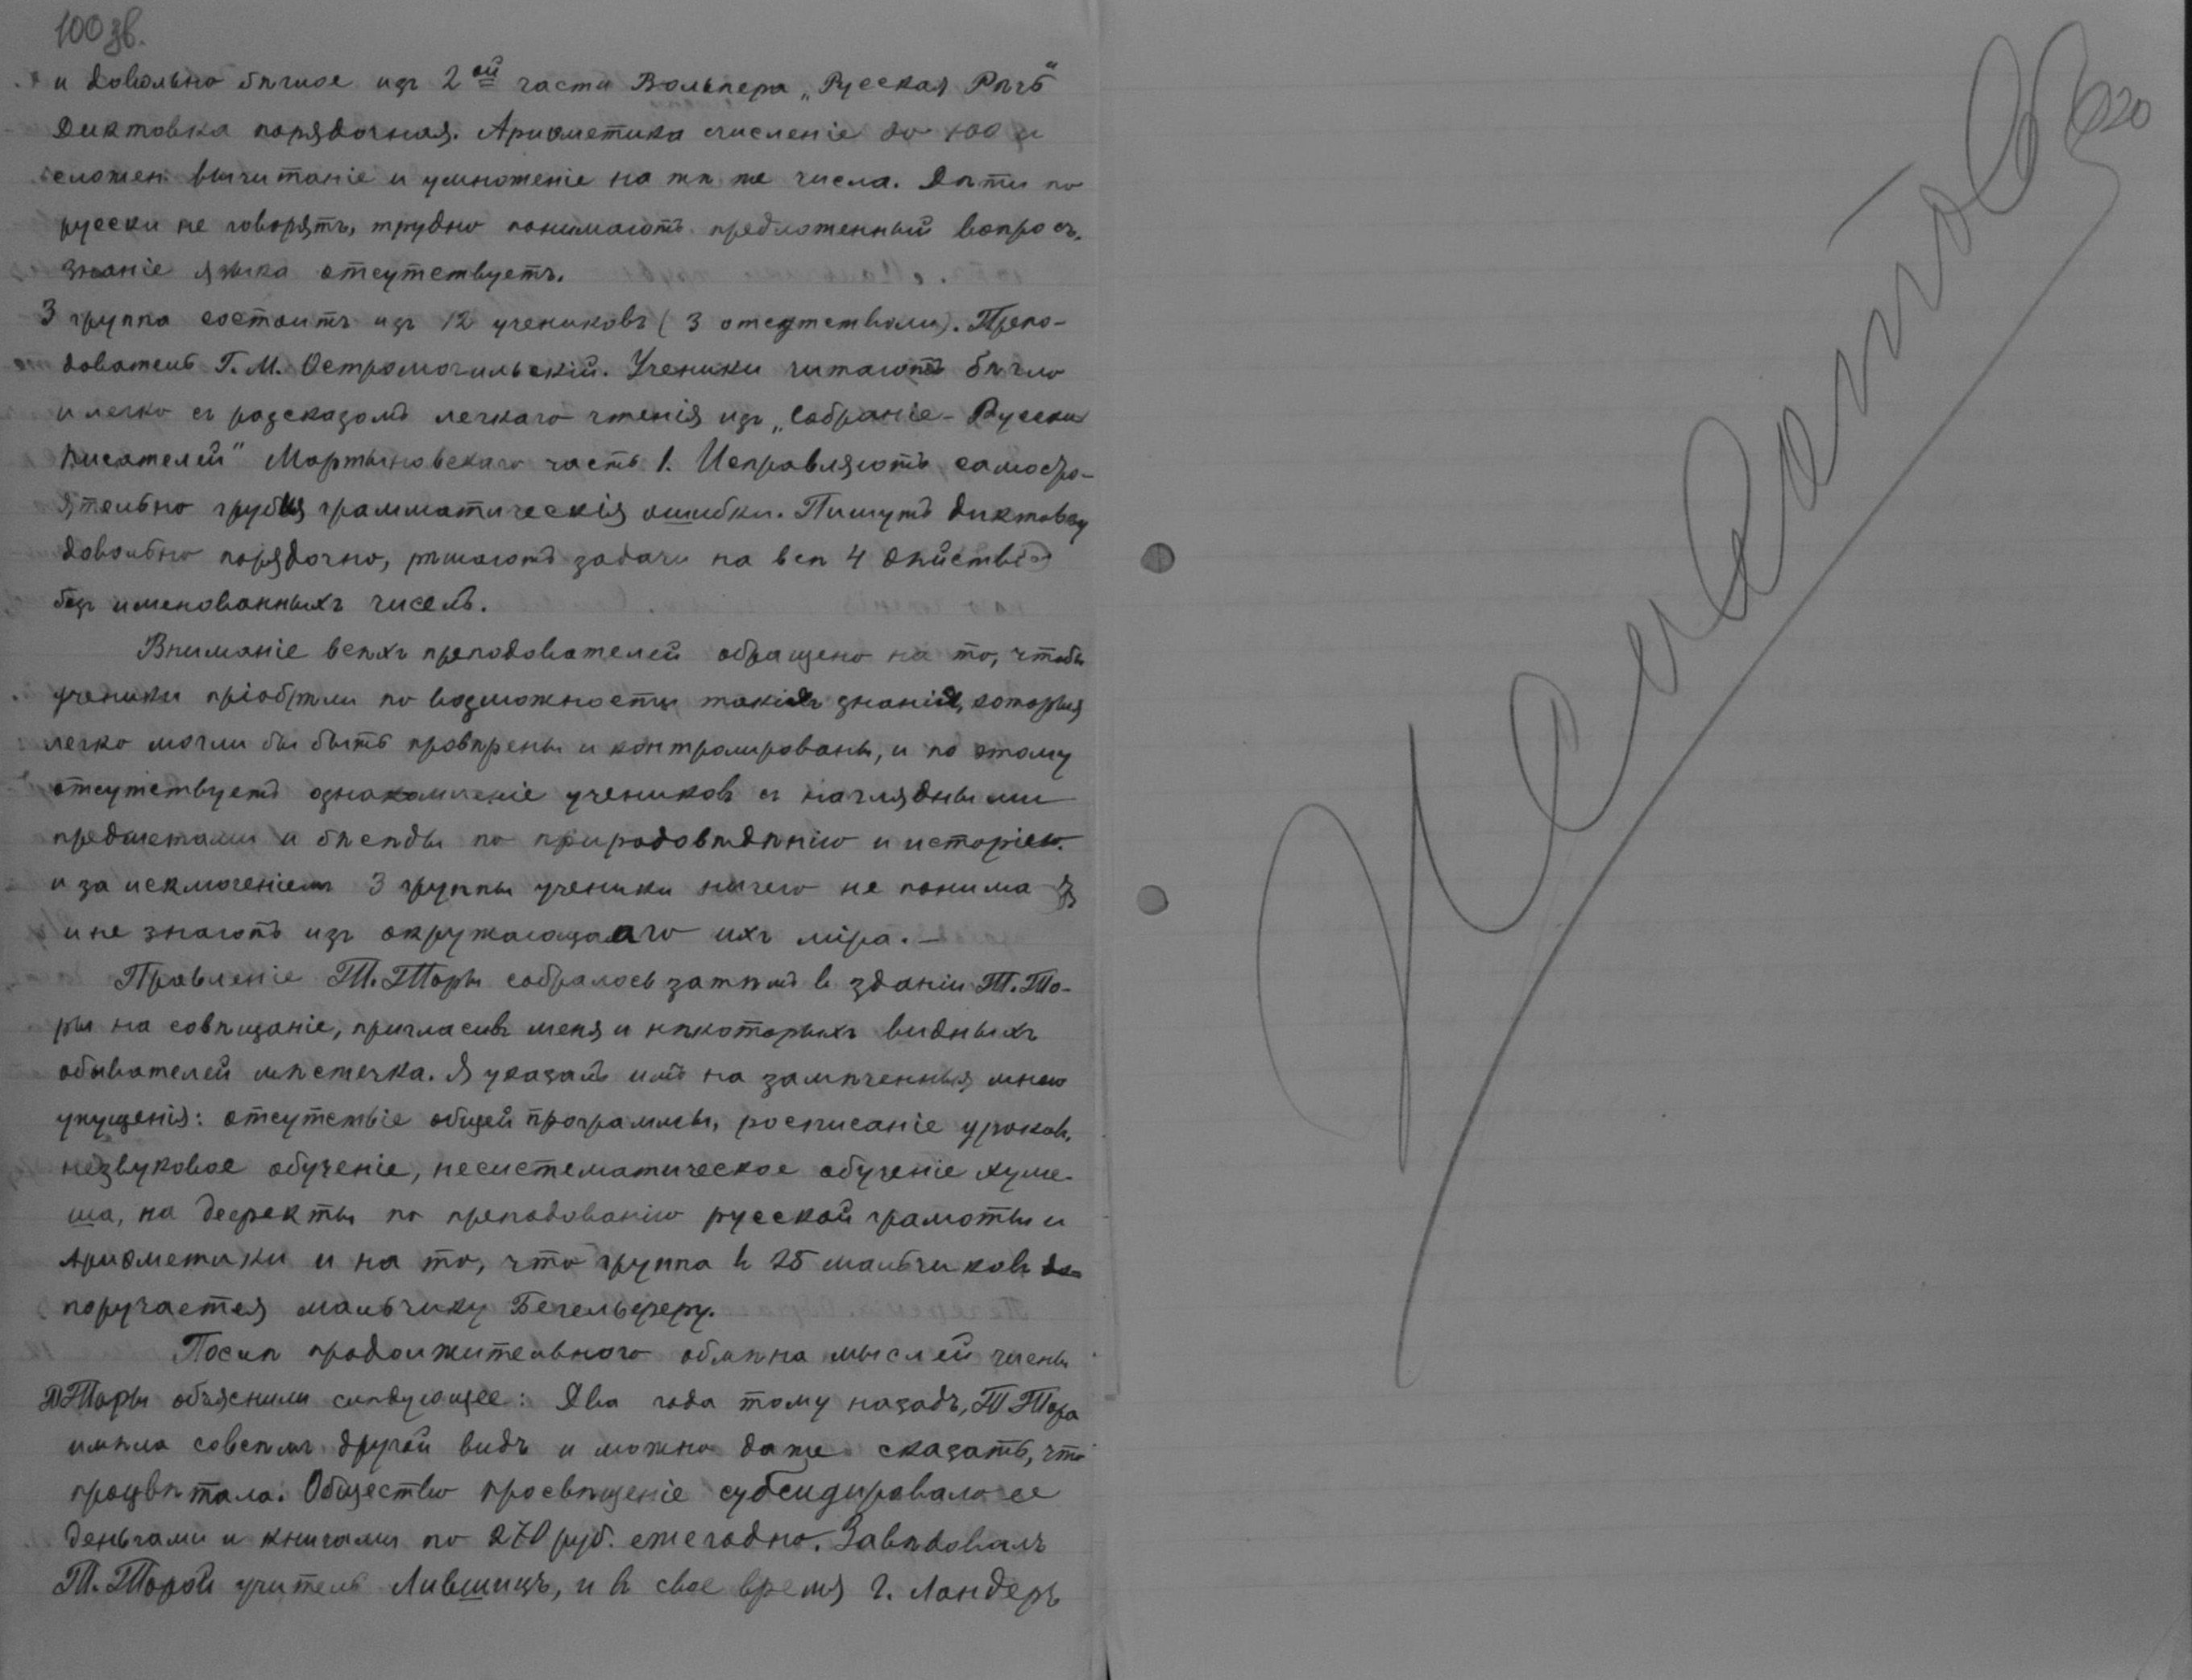 100 зв.
и довольно бѣглое изъ 2ой части Вольпера „Русская Рѣчь"
Диктовка порядочная. Ариѳметика счисленіе до 100 и
сложен. вычитаніе и умноженіе на тѣ же числа. Дѣти по
русски не говорятъ, трудно понимаютъ предложенный вопросъ.
знаніе языка отсутствуетъ.
3 группа состоитъ изъ 12 учениковъ (3 отсутствовали). Препо-
дователь Г. М. Остромогильскій. Ученики читаютъ бѣгло
и легко съ разсказомъ легкаго чтенія изъ „Собраніе Русских
Писателей" Мартыновскаго часть 1. Исправляютъ самосто-
ятельно грубыя грамматическія ошибки. Пишутъ диктовку
довольно порядочно, рѣшаютъ задачи на всѣ 4 дѣйствія
без именованныхъ чиселъ.
Вниманіе всѣхъ преподователей обращено на то, чтобы
ученики пріобрѣли по возможности такія знанія, которыя
легко могли бы быть провѣрены и контролированы, и по этому
отсутствуетъ ознакомленіе учениковъ съ наглядными
предметами и бесѣды по природовѣдѣнію и исторіею.
и за исключеніемъ 3 группы ученики ничего не понима
и не знаютъ изъ окружающаго ихъ міра. —
Правленіе Т. Торы собралось затѣмъ въ зданіи Т. То-
ры на совѣщаніе, пригласивъ меня и нѣкоторыхъ видныхъ
обывателей мѣстечка. Я указалъ имъ на замѣченныя мною
упущенія: отсутствіе общей программы, росписаніе уроковъ,
незвуковое обученіе, несистематическое обученіе хуме-
ша, на дефекты по преподованію русской грамоты и
Ариѳметики и на то, что группа въ 25 мальчиковъ
поручается мальчику Бегельферу.
Послѣ продолжительного обмѣна мыслей члены
Т Торы объяснили слѣдующее: Два года тому назадъ, Т Тора
имѣла совсѣмъ другой видъ и можно даже сказать, что
процвѣтала. Общество просвѣщеніе субсидировало ее
деньгами и книгами по 270 руб. ежегодно. Завѣдовалъ
Т. Торой учитель Лившицъ, и въ свое время г. Ландеръ